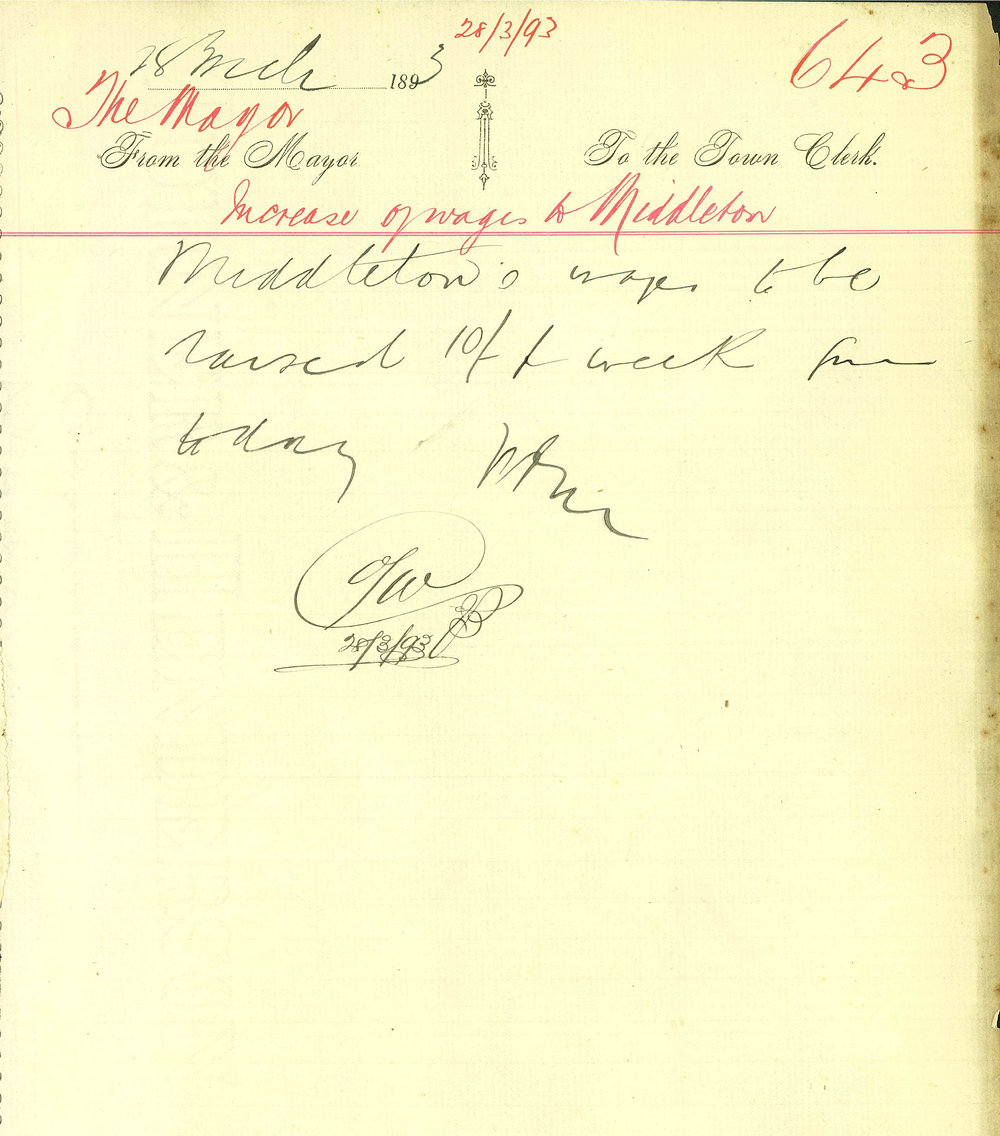 28/3/93
28 March 1893
643
The Mayor
From the Mayor To the Town Clerk.
Increase of wages to Middleton
Middleton's wages to be
raised 10/ p week from
today
28/3/93